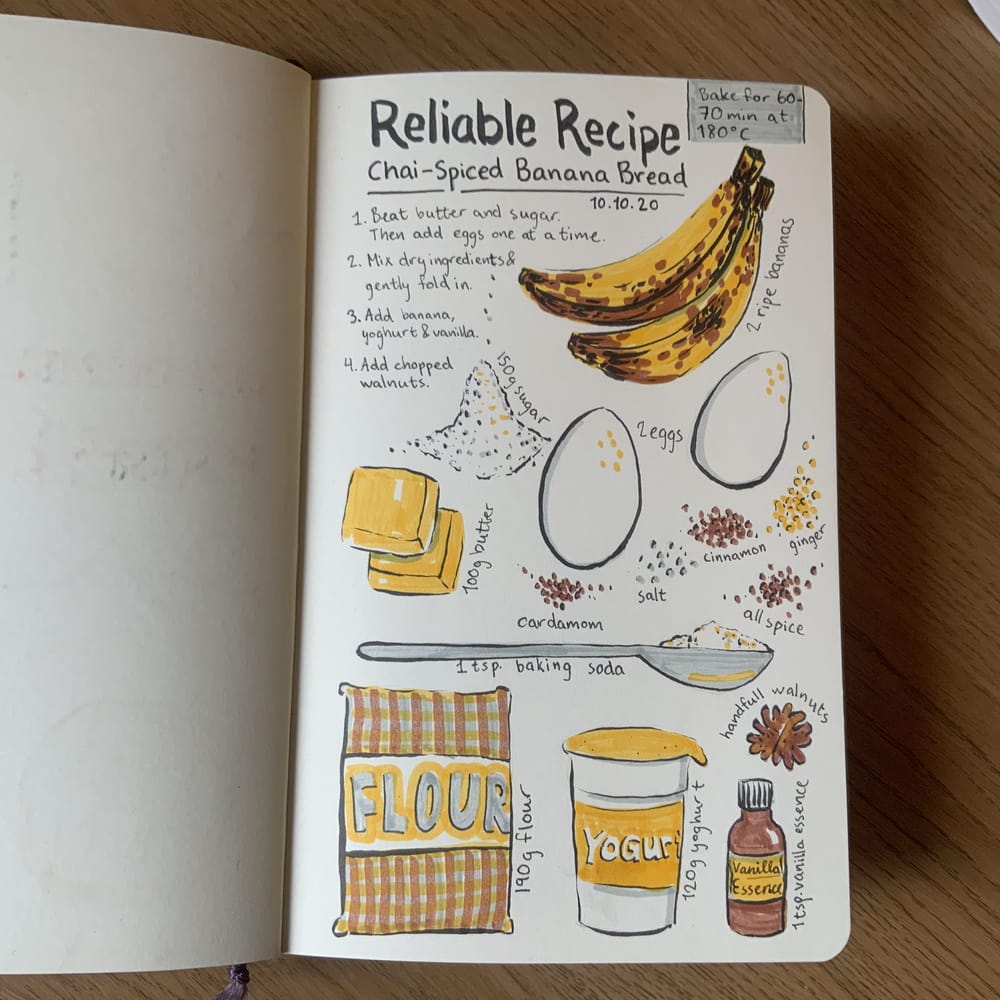 Reliable Recipe
Bake for 60-
70 min at
180°C
Chai-Spiced Banana Bread
10.10.20
1. Beat butter and sugar.
Then add eggs one at a time.
2. Mix dry ingredients &
gently fold in.
3. Add banana,
yoghurt & vanilla.
4. Add chopped
walnuts.
2 ripe bananas
150g sugar
2 eggs
100g butter
cinnamon
ginger
salt
cardamom
all spice
1 tsp. baking soda
handfull walnuts
FLOUR
190g flour
YOGURT
120g yoghurt
Vanilla
Essence
1 tsp. vanilla essence